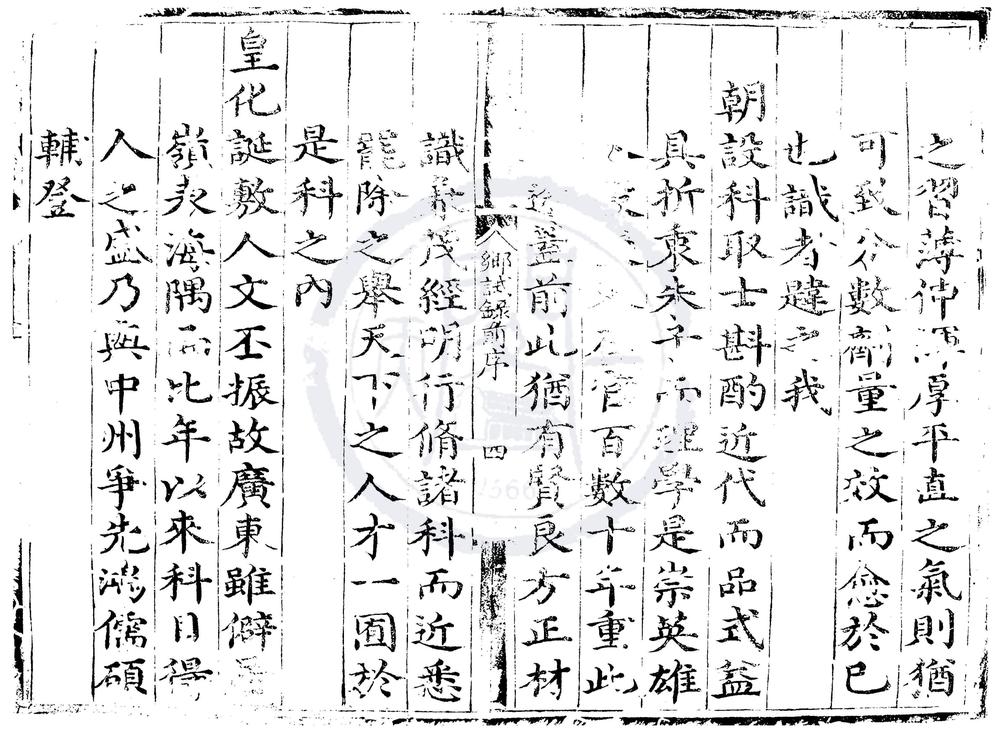 之習薄沖渾厚平直之氣則猶
可到分數劑量之效而愈於已
也識者韙之我
朝設科取士斟酌近代而品式益
具折衷朱子而理學是崇英雄
百數十年重此
蓋前此猶有賢良方正材
鄉試錄前序
四
識兼茂經明行脩諸科而近悉
罷除之舉天下之人才一囿於
是科之內
皇化誕敷人文丕振故廣東雖僻
嶺表海隅而比年以來科目得
人之盛乃與中州爭先鴻儒碩
輔登